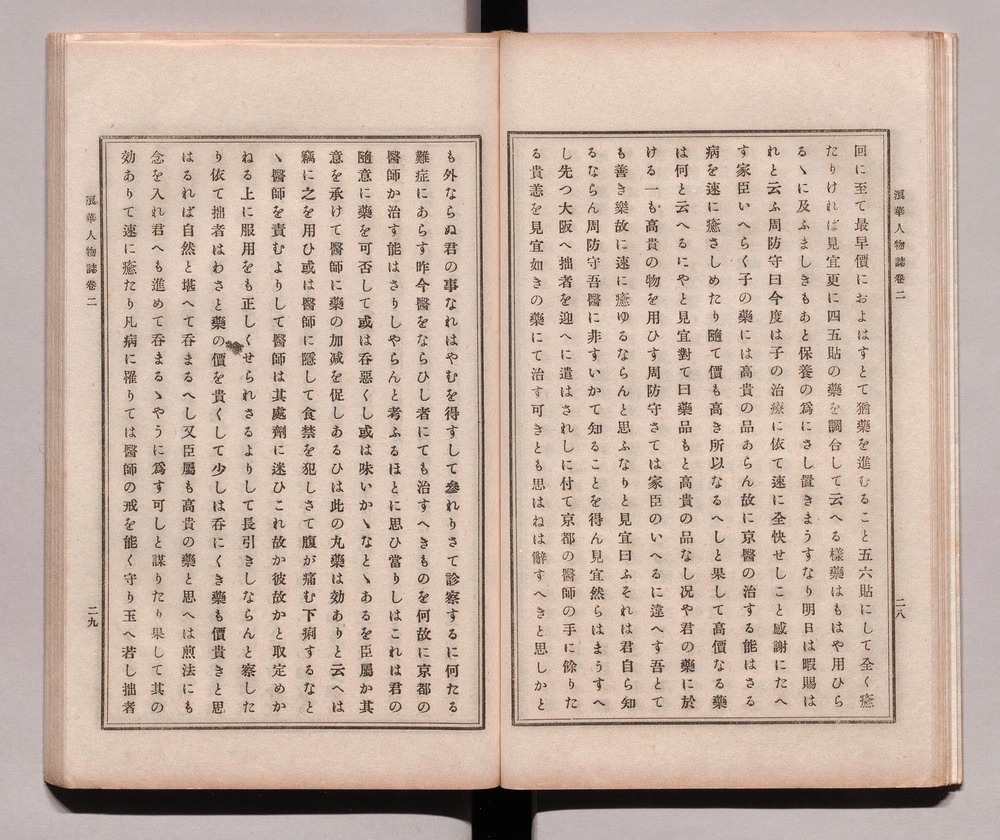 浪華人物誌卷二
二八
回に至て最早價におよはすとて猶藥を進むること五六貼にして全く癒
たりければ見宜更に四五貼の藥を調合して云へる樣藥はもはや用ひら
るゝに及ふましきもあと保養の爲にさし置きまうすなり明日は暇賜は
れと云ふ周防守曰今度は子の治療に依て速に全快せしこと感謝にたへ
す家臣いへらく子の藥には高貴の品あらん故に京醫の治する能はさる
病を速に癒さしめたり隨て價も高き所以なるへしと果して高價なる藥
は何と云へるにやと見宜對て曰藥品もと高貴の品なし况や君の藥に於
ける一も高貴の物を用ひす周防守さては家臣のいへるに違へす吾とて
も善き樂故に速に癒ゆるならんと思ふなりと見宜曰ふそれは君自ら知
るならん周防守吾醫に非すいかて知ることを得ん見宜然らはまうすへ
し先つ大阪へ拙者を迎へに遣はされしに付て京都の醫師の手に餘りた
る貴恙を見宜如きの藥にて治す可きとも思はねは辭すへきと思しかと
も外ならぬ君の事なれはやむを得すして參れりさて診察するに何たる
難症にあらす昨今醫をならひし者にても治すへきものを何故に京都の
醫師か治す能はさりしやらんと考ふるほとに思ひ當りしはこれは君の
隨意に藥を可否して或は呑惡くし或は味いかゝなとゝあるを臣屬か其
意を承けて醫師に藥の加减を促しあるひは此の丸藥は効ありと云へは
竊に之を用ひ或は醫師に隱して食禁を犯しさて腹が痛む下痢するなと
ゝ醫師を責むよりして醫師は其處劑に迷ひこれ故か彼故かと取定めか
ねる上に服用をも正しくせられさるよりして長引きしならんと察した
り依て拙者はわさと藥の價を貴くして少しは呑にくき藥も價貴きと思
はるれば自然と堪へて呑まるへし又臣屬も高貴の藥と思へは煎法にも
念を入れ君へも進めて呑まるゝやうに爲す可しと謀りたり果して其の
効ありて速に癒たり凡病に罹りては醫師の戒を能く守り玉へ若し拙者
浪華人物誌卷二
二九